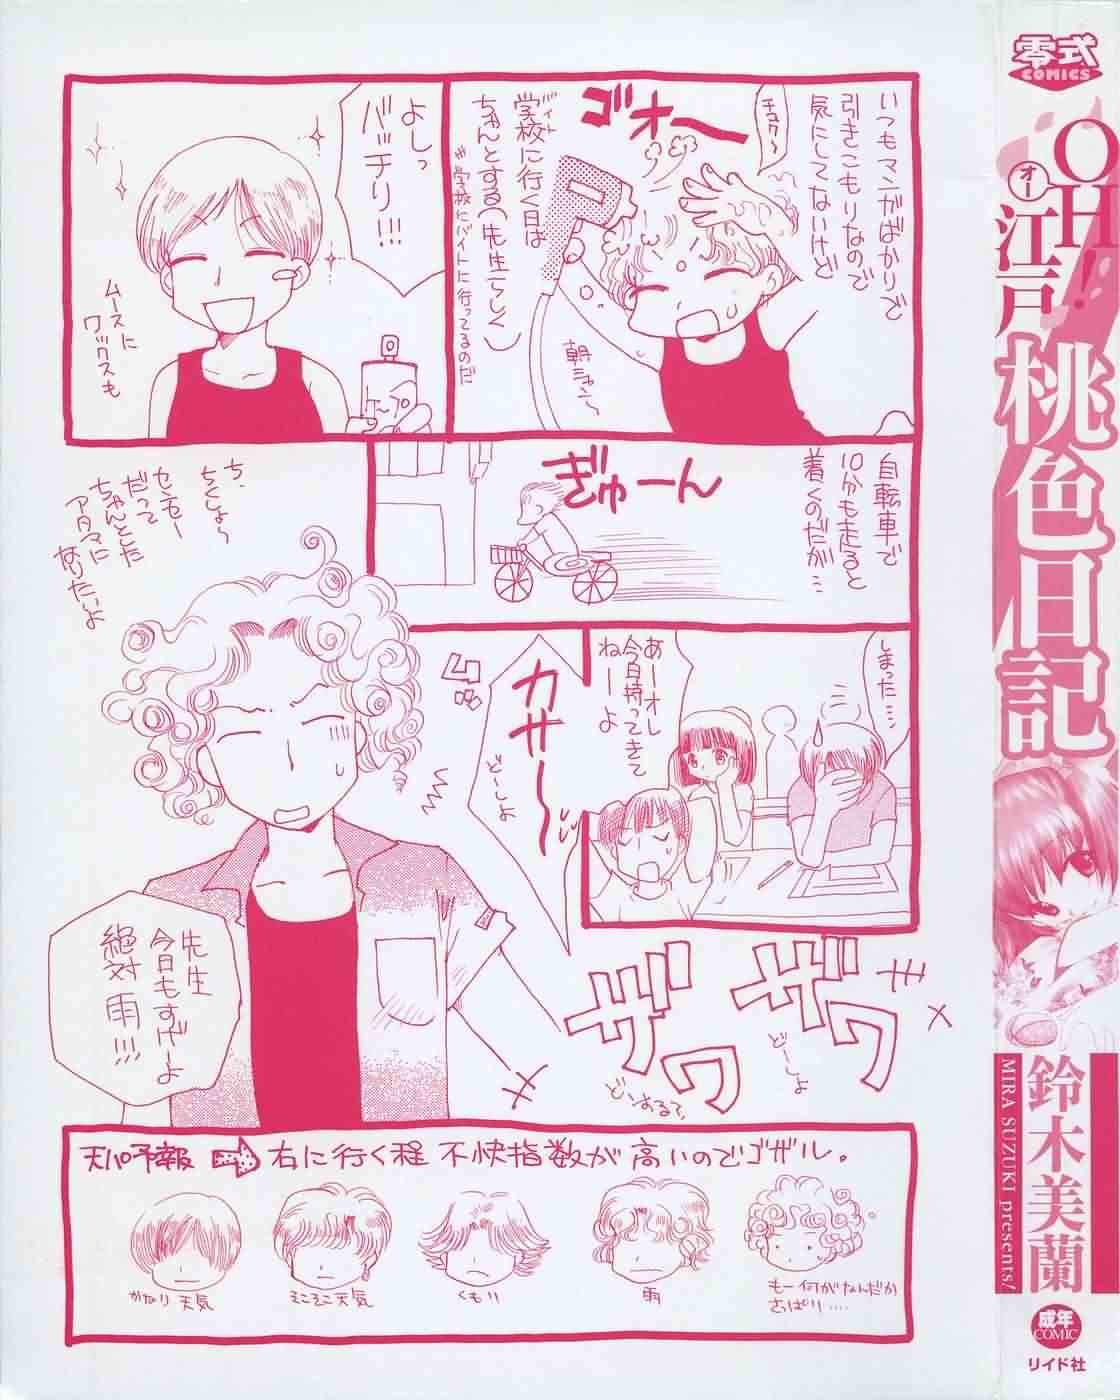 いつもマンガばかりで
引きこもりなので
気にしてないけど
チュク〜
ゴオー
バイト
学校に行く日は
ちゃんとする(先生らしく)
※学校にバイトに行ってるのだ
朝シャン〜
よしっ
バッチリ!!!
ムースに
ワックスも
自転車で
10分も走ると
着くのだが…
ぎゅーん
しまった…
あーオレ
今日持ってきて
ねーよ
カサ〜
どーしよ
ち、
ちくしょ〜
センセー
だって
ちゃんとした
アタマに
なりたいよ
先生
今日もすげーよ
絶対雨!!!
ザワ
ザワ
どーしよ
どうするて
天パ予報 → 右に行く程 不快指数が高いのでゴザル。
かなり天気
そこそこ天気
くもり
雨
もー何がなんだか
さっぱり....
零式
COMICS
OH!
オー
江戸桃色日記
鈴木美蘭
MIRA SUZUKI presents/
成年
COMIC
リイド社